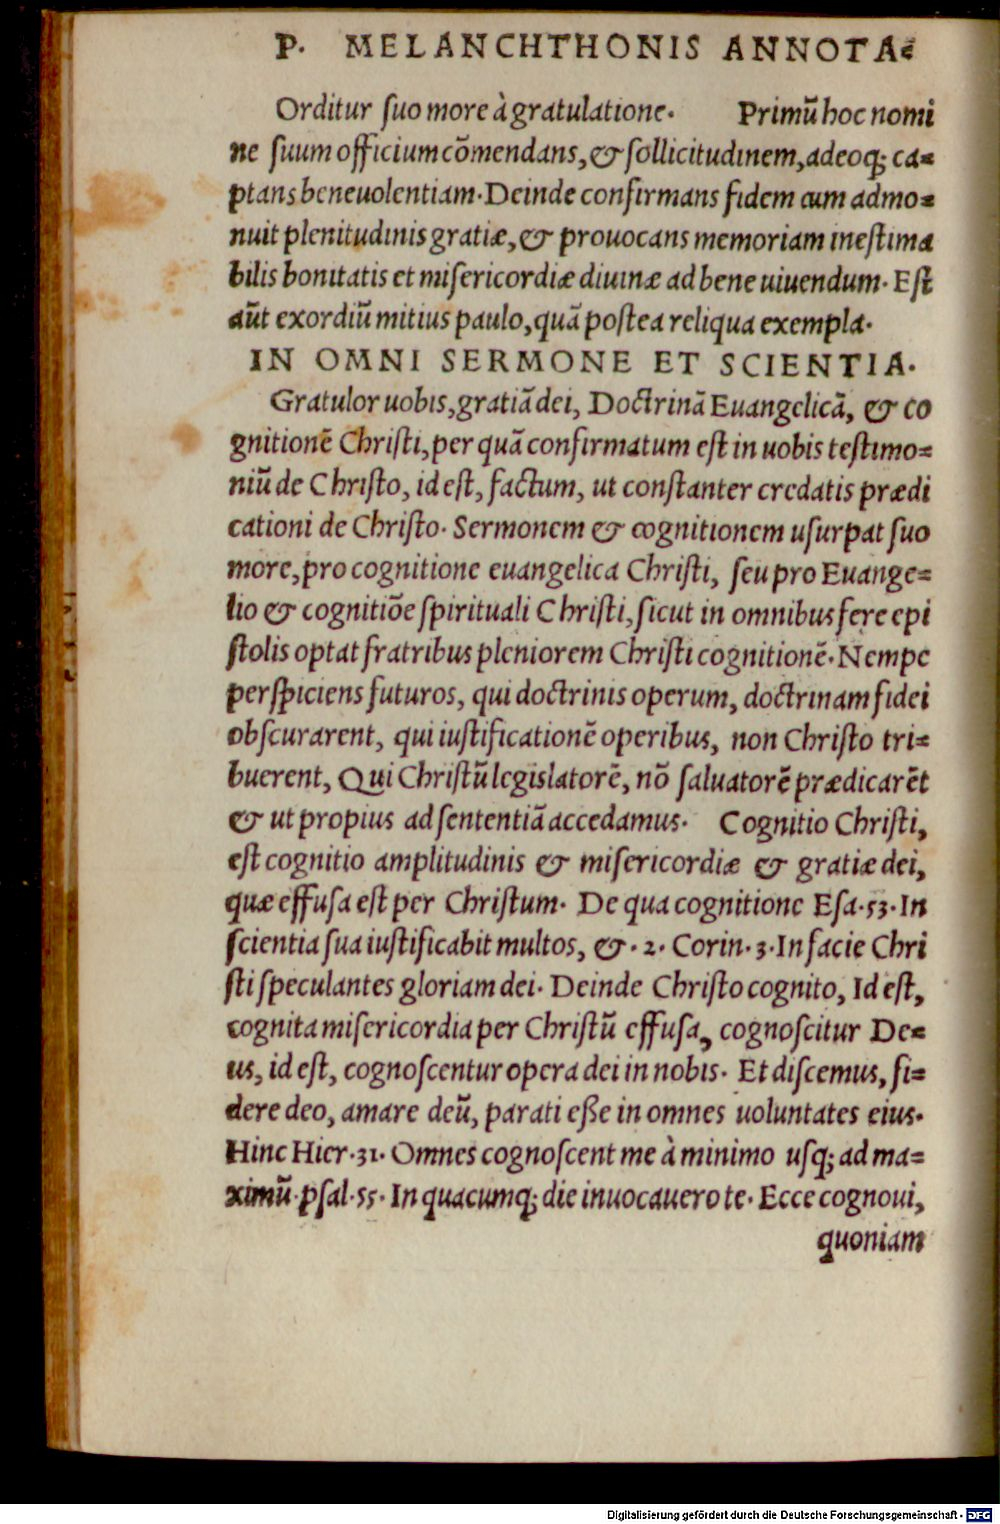 P. MELANCHTHONIS ANNOTA⸗
Orditur ſuo more à gratulatione. Primũ hoc nomi
ne ſuum officium cõmendans, & ſollicitudinem, adeoq; ca⸗
ptans beneuolentiam. Deinde confirmans fidem cum admo⸗
nuit plenitudinis gratiæ, & prouocans memoriam ineſtima
bilis bonitatis et miſericordiæ diuinæ ad bene uiuendum. Eſt
aũt exordiũ mitius paulo, quã poſtea reliqua exempla.
IN OMNI SERMONE ET SCIENTIA.
Gratulor uobis, gratiã dei, Doctrinã Euangelicã, & co
gnitionẽ Chriſti, per quã confirmatum eſt in uobis teſtimo⸗
niũ de Chriſto, id eſt, factum, ut conſtanter credatis prædi
cationi de Chriſto. Sermonem & cognitionem uſurpat ſuo
more, pro cognitione euangelica Chriſti, ſeu pro Euange⸗
lio & cognitiõe ſpirituali Chriſti, ſicut in omnibus fere epi
ſtolis optat fratribus pleniorem Chriſti cognitionẽ. Nempe
perſpiciens futuros, qui doctrinis operum, doctrinam fidei
obſcurarent, qui iuſtificationẽ operibus, non Chriſto tri⸗
buerent, Qui Chriſtũ legislatorẽ, nõ ſaluatorẽ prædicarẽt
& ut propius ad ſententiã accedamus. Cognitio Chriſti,
eſt cognitio amplitudinis & miſericordiæ & gratiæ dei,
quæ effuſa eſt per Chriſtum. De qua cognitione Eſa. 53. In
ſcientia ſua iuſtificabit multos, &. 2. Corin. 3. In facie Chri
ſti ſpeculantes gloriam dei. Deinde Chriſto cognito, Id eſt,
cognita miſericordia per Chriſtũ effuſa, cognoſcitur De⸗
us, id eſt, cognoſcentur opera dei in nobis. Et diſcemus, fi⸗
dere deo, amare deũ, parati eſſe in omnes uoluntates eius.
Hinc Hier. 31. Omnes cognoſcent me à minimo uſq; ad ma⸗
ximũ. pſal. 55. In quacumq; die inuocauero te. Ecce cognoui,
quoniam
Digitalisierung gefördert durch die Deutsche Forschungsgemeinschaft - DFG